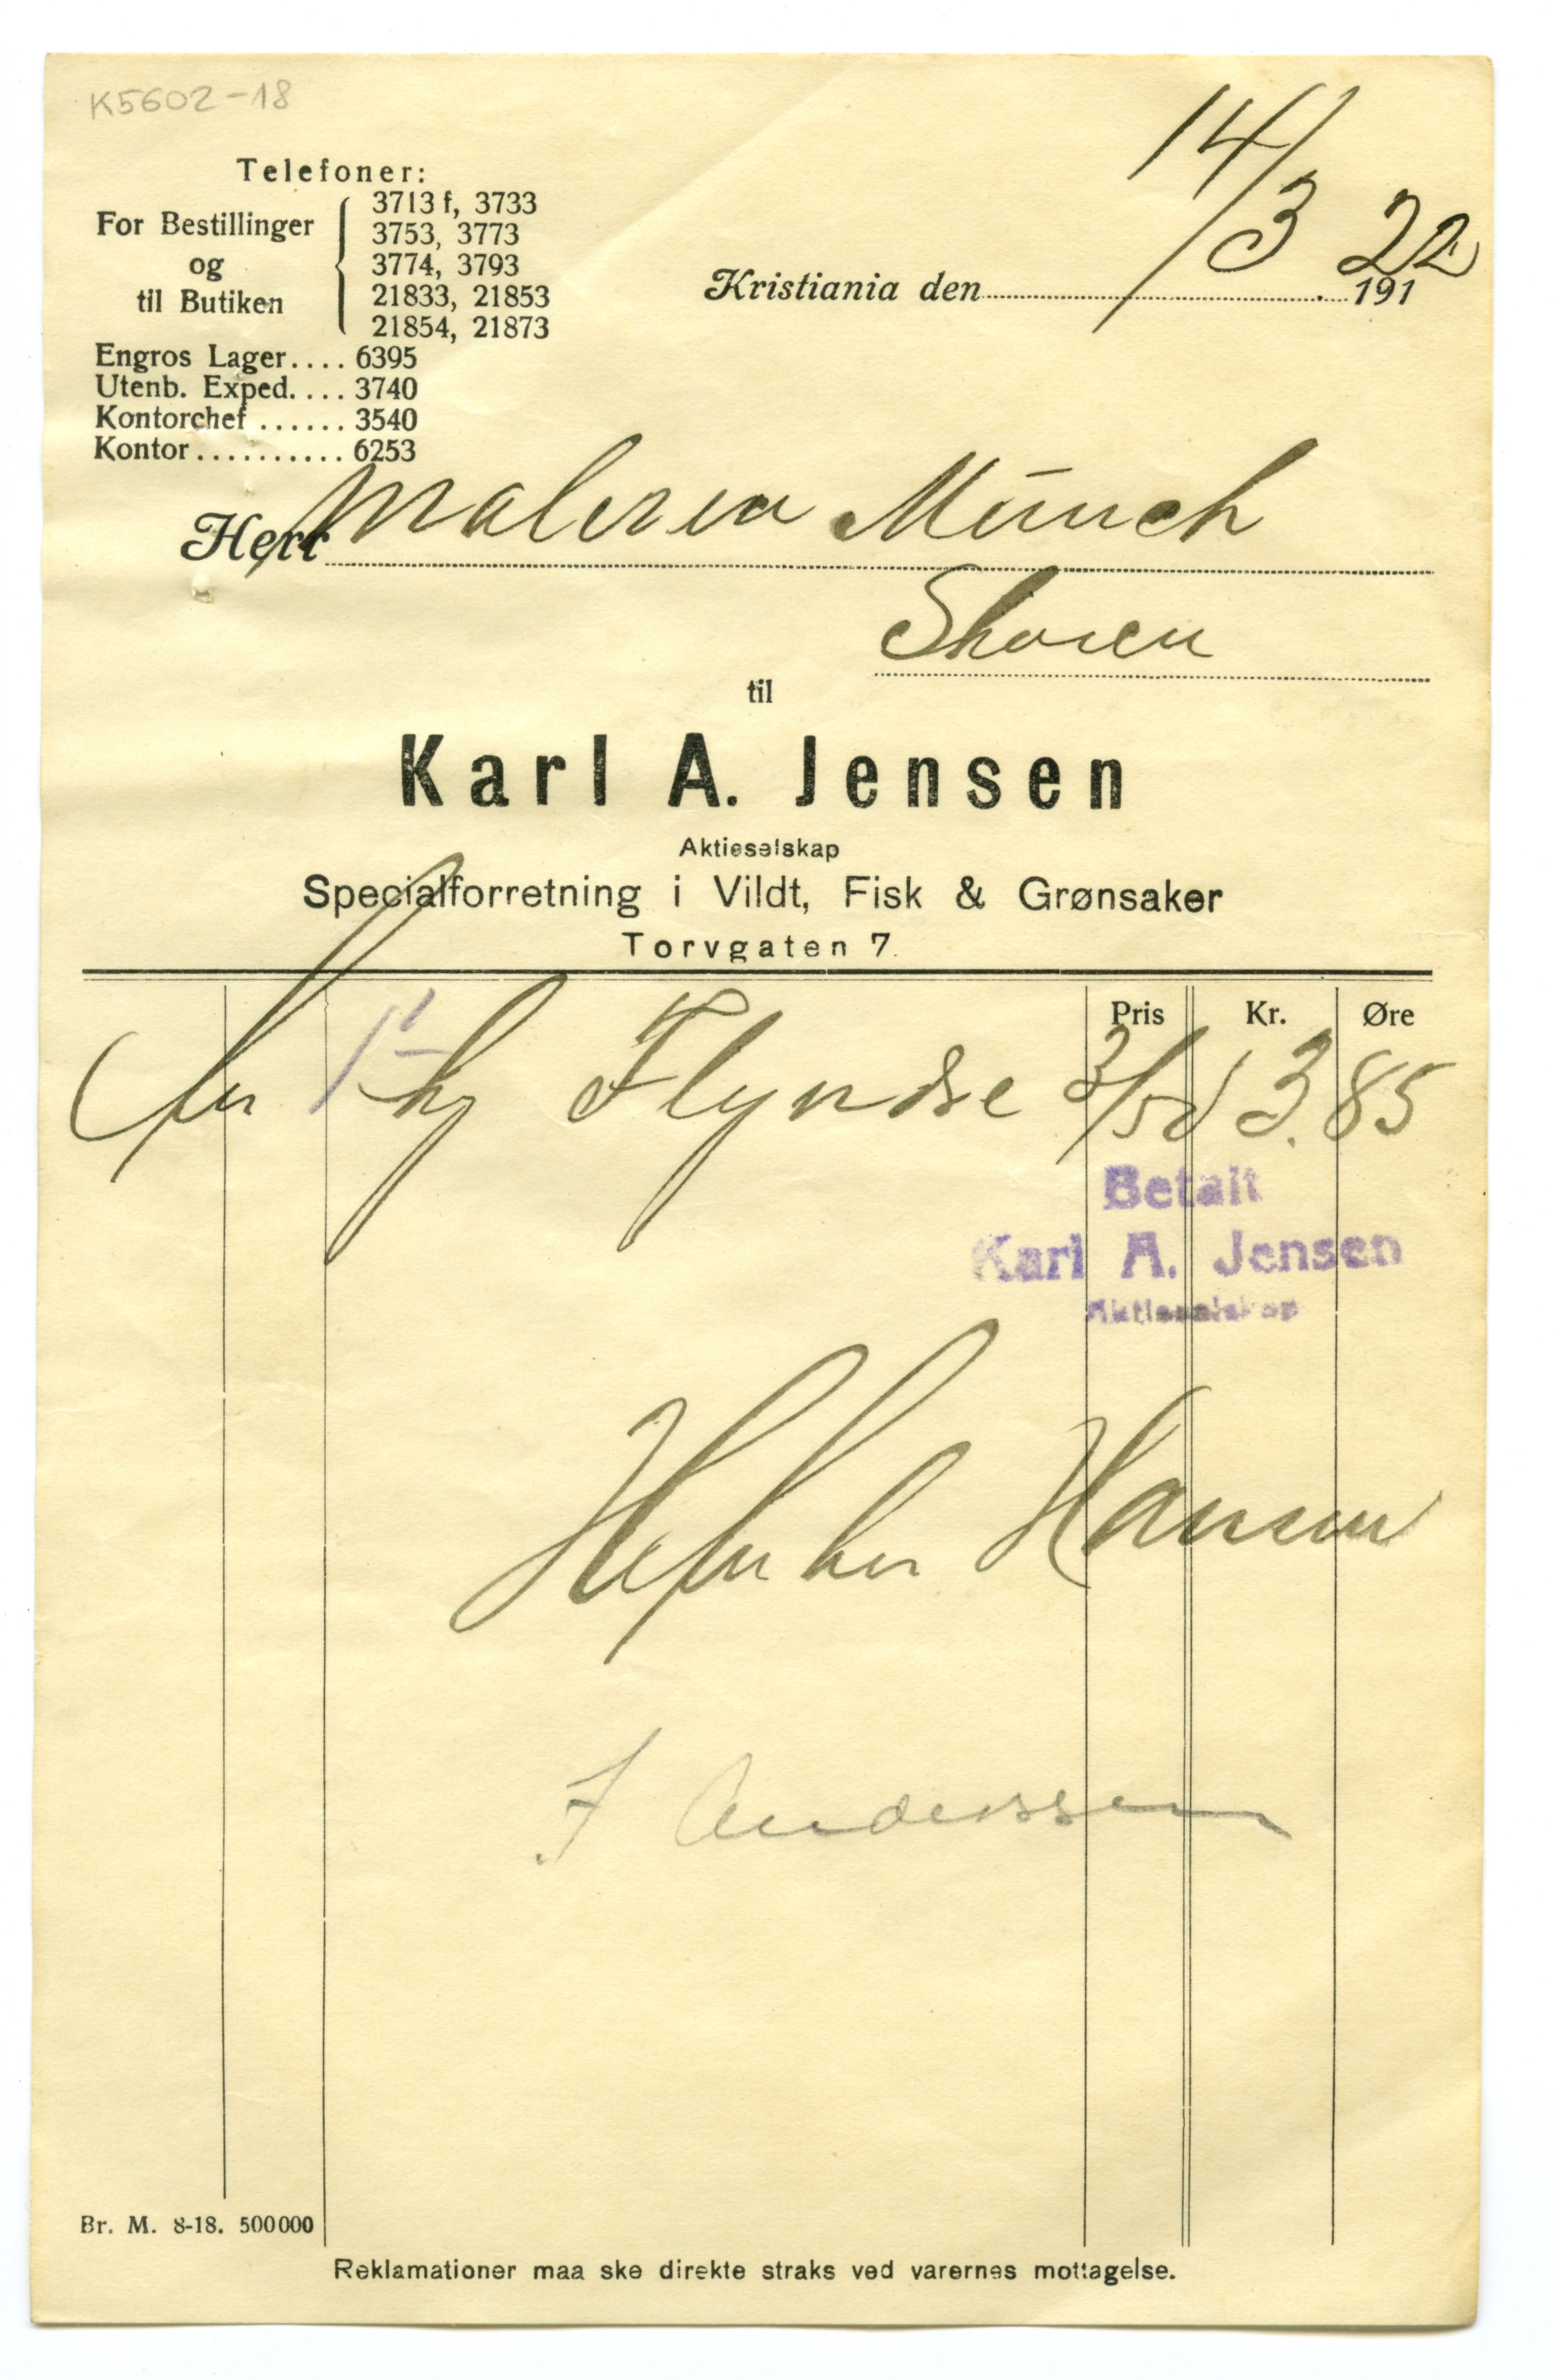 K5602-18
Telefoner:
For Bestillinger og til Butiken
3713 f, 3733
3753, 3773
3774, 3793
21833, 21853
21854, 21873
Engros Lager.... 6395
Utenb. Exped.... 3740
Kontorchef ...... 3540
Kontor.......... 6253
14/3 22
Kristiania den 191
Herr Maleren Münch
Skøien
til
Karl A. Jensen
Aktieselskap
Specialforretning i Vildt, Fisk & Grønsaker
Torvgaten 7.
Pris Kr. Øre
kg Flyndre 3/50 3.85
Betalt
Karl A. Jensen
Aktieselskap
Hansen
J Anderssen
Br. M. 8-18. 500000
Reklamationer maa ske direkte straks ved varernes mottagelse.